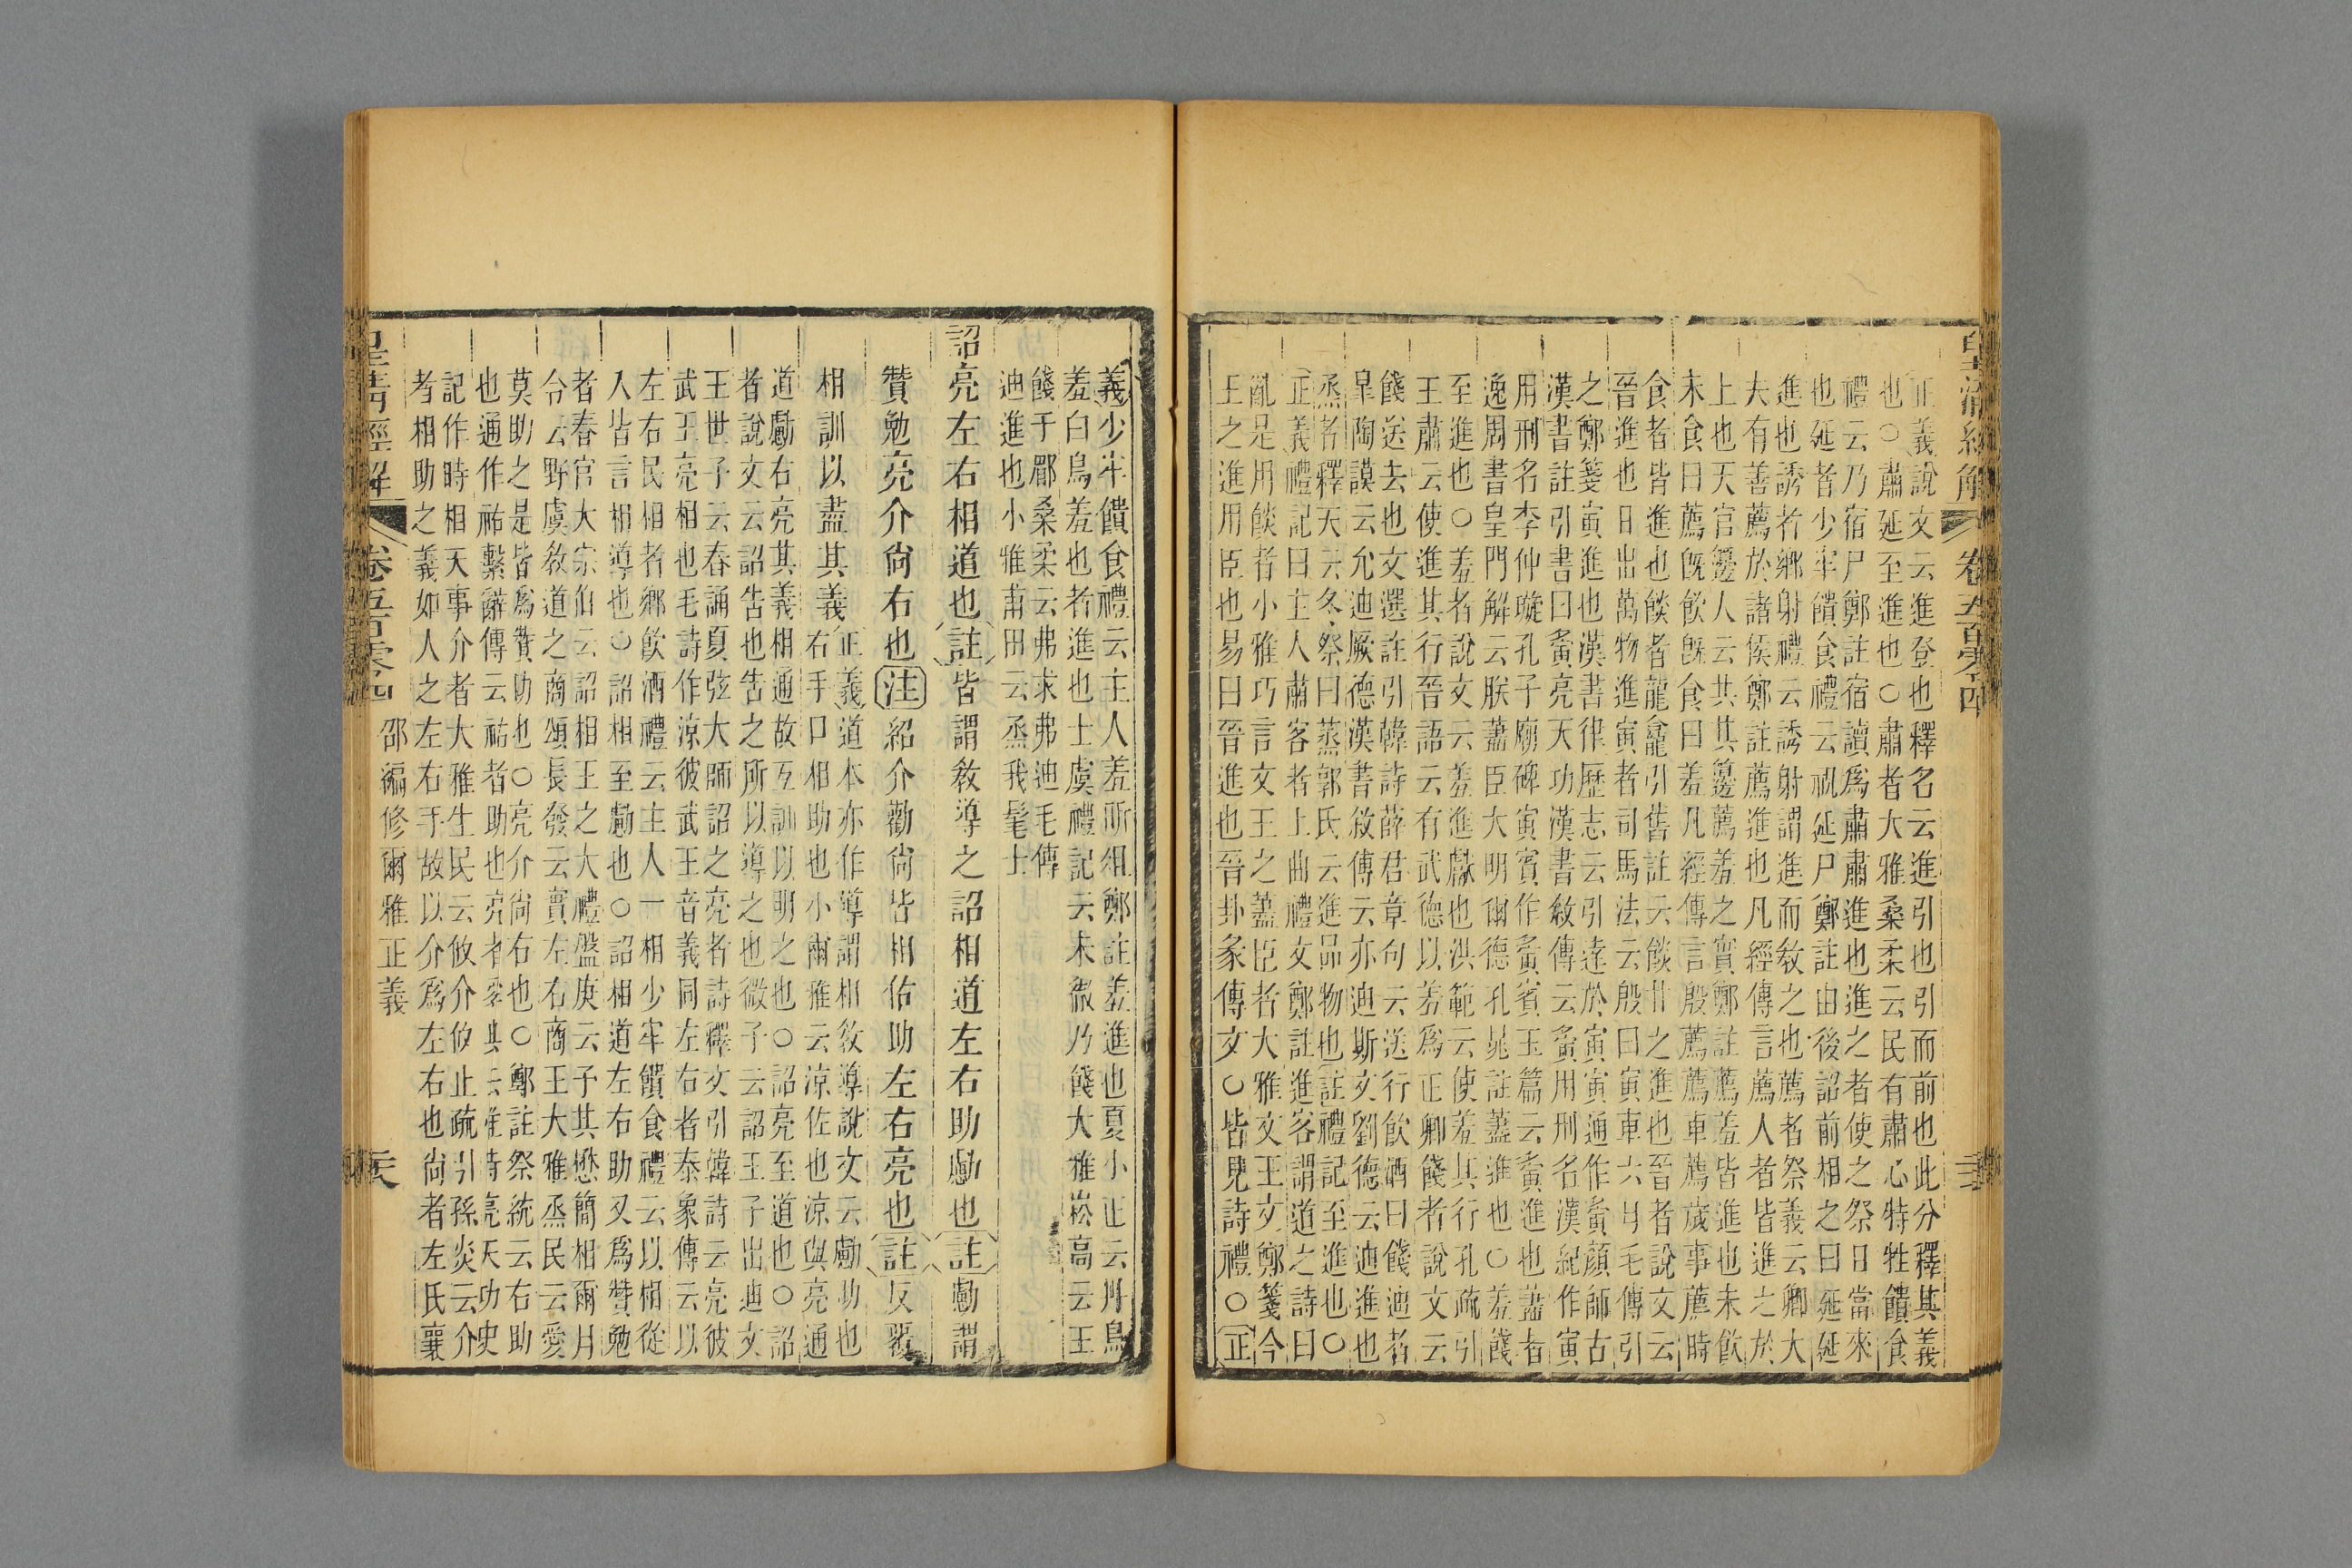 皇清經解 卷五百零四 三
正義說文云進登也釋名云進引也引而前也此分釋其義
也○肅延至進也○肅者大雅桑柔云民有肅心特牲饋食
禮云乃宿尸鄭註宿讀爲肅肅進也進之者使之祭日當來
也延者少牢饋食禮云祝延尸鄭註由後詔前相之曰延延
進也誘者鄉射禮云誘射謂進而教之也薦者祭義云卿大
夫有善薦於諸侯鄭註薦進也凡經傳言薦人者皆進之於
上也天官籩人云其其籩薦羞之實鄭註薦羞皆進也未飲
未食曰薦既飲既食曰羞凡經傳言殷薦車薦歲事薦時
食者皆進也餤者龍龕引舊註云餤甘之進也晉者說文云
晉進也日出萬物進寅者司馬法云殷曰寅車六月毛傳引
之鄭箋寅進也漢書律歷志云引達於寅寅通作夤顏師古
漢書註引書曰夤亮天功漢書敘傳云夤用刑名漢紀作寅
用刑名李仲璇孔子廟碑寅賓作夤賓玉篇云夤進也藎者
逸周書皇門解云朕藎臣大明爾德孔晁註藎進也○羞餞
至進也○羞者說文云羞進獻也洪範云使羞其行孔疏引
王肅云使進其行晉語云有武德以羞爲正卿餞者說文云
餞送去也文選註引韓詩薛君章句云送行飲酒曰餞迪者
皐陶謨云允迪厥德漢書敘傳云亦迪斯文劉德云迪進也
烝者釋天云冬祭曰蒸郭氏云進品物也註禮記至進也○
正義禮記曰主人肅客者上曲禮文鄭註進客謂道之詩曰
亂是用餤者小雅巧言文王之藎臣者大雅文王文鄭箋今
王之進用臣也易曰晉進也晉卦彖傳文○皆見詩禮○正
義少牢饋食禮云主人羞肵俎鄭註羞進也夏小正云丹鳥
羞白鳥羞也者進也士虞禮記云未徹乃餞大雅崧高云王
餞于郿桑柔云弗求弗迪毛傳
迪進也小雅甫田云烝我髦士
詔亮左右相道也註皆謂教導之詔相道左右助勴也註勴謂
贊勉亮介尙右也注紹介勸尙皆相佑助左右亮也註反覆
相訓以盡其義正義道本亦作導謂相敎導說文云勴助也
右手口相助也小爾雅云涼佐也涼與亮通
道勴右亮其義相通故互訓以明之也○詔亮至道也○詔
者說文云詔告也告之所以導之也微子云詔王子出迪文
王世子云春誦夏弦大師詔之亮者詩釋文引韓詩云亮彼
武王亮相也毛詩作涼彼武王音義同左右者泰象傳云以
左右民相者鄉飲酒禮云主人一相少牢饋食禮云以相從
人皆言相導也○詔相至勴也○詔相道左右助又爲贊勉
者春官大宗伯云詔相王之大禮盤庚云予其懋簡相爾月
令云野虞敎道之商頌長發云實左右商王大雅烝民云愛
莫助之是皆爲贊助也○亮介尙右也○鄭註祭統云右助
也通作祐繫辭傳云祐者助也亮者采其云惟時亮天功史
記作時相天事介者大雅生民云攸介攸止疏引孫炎云介
者相助之義如人之左右手故以介爲左右也尙者左氏襄
皇清經解 卷五百零四 邵編修爾雅正義 天